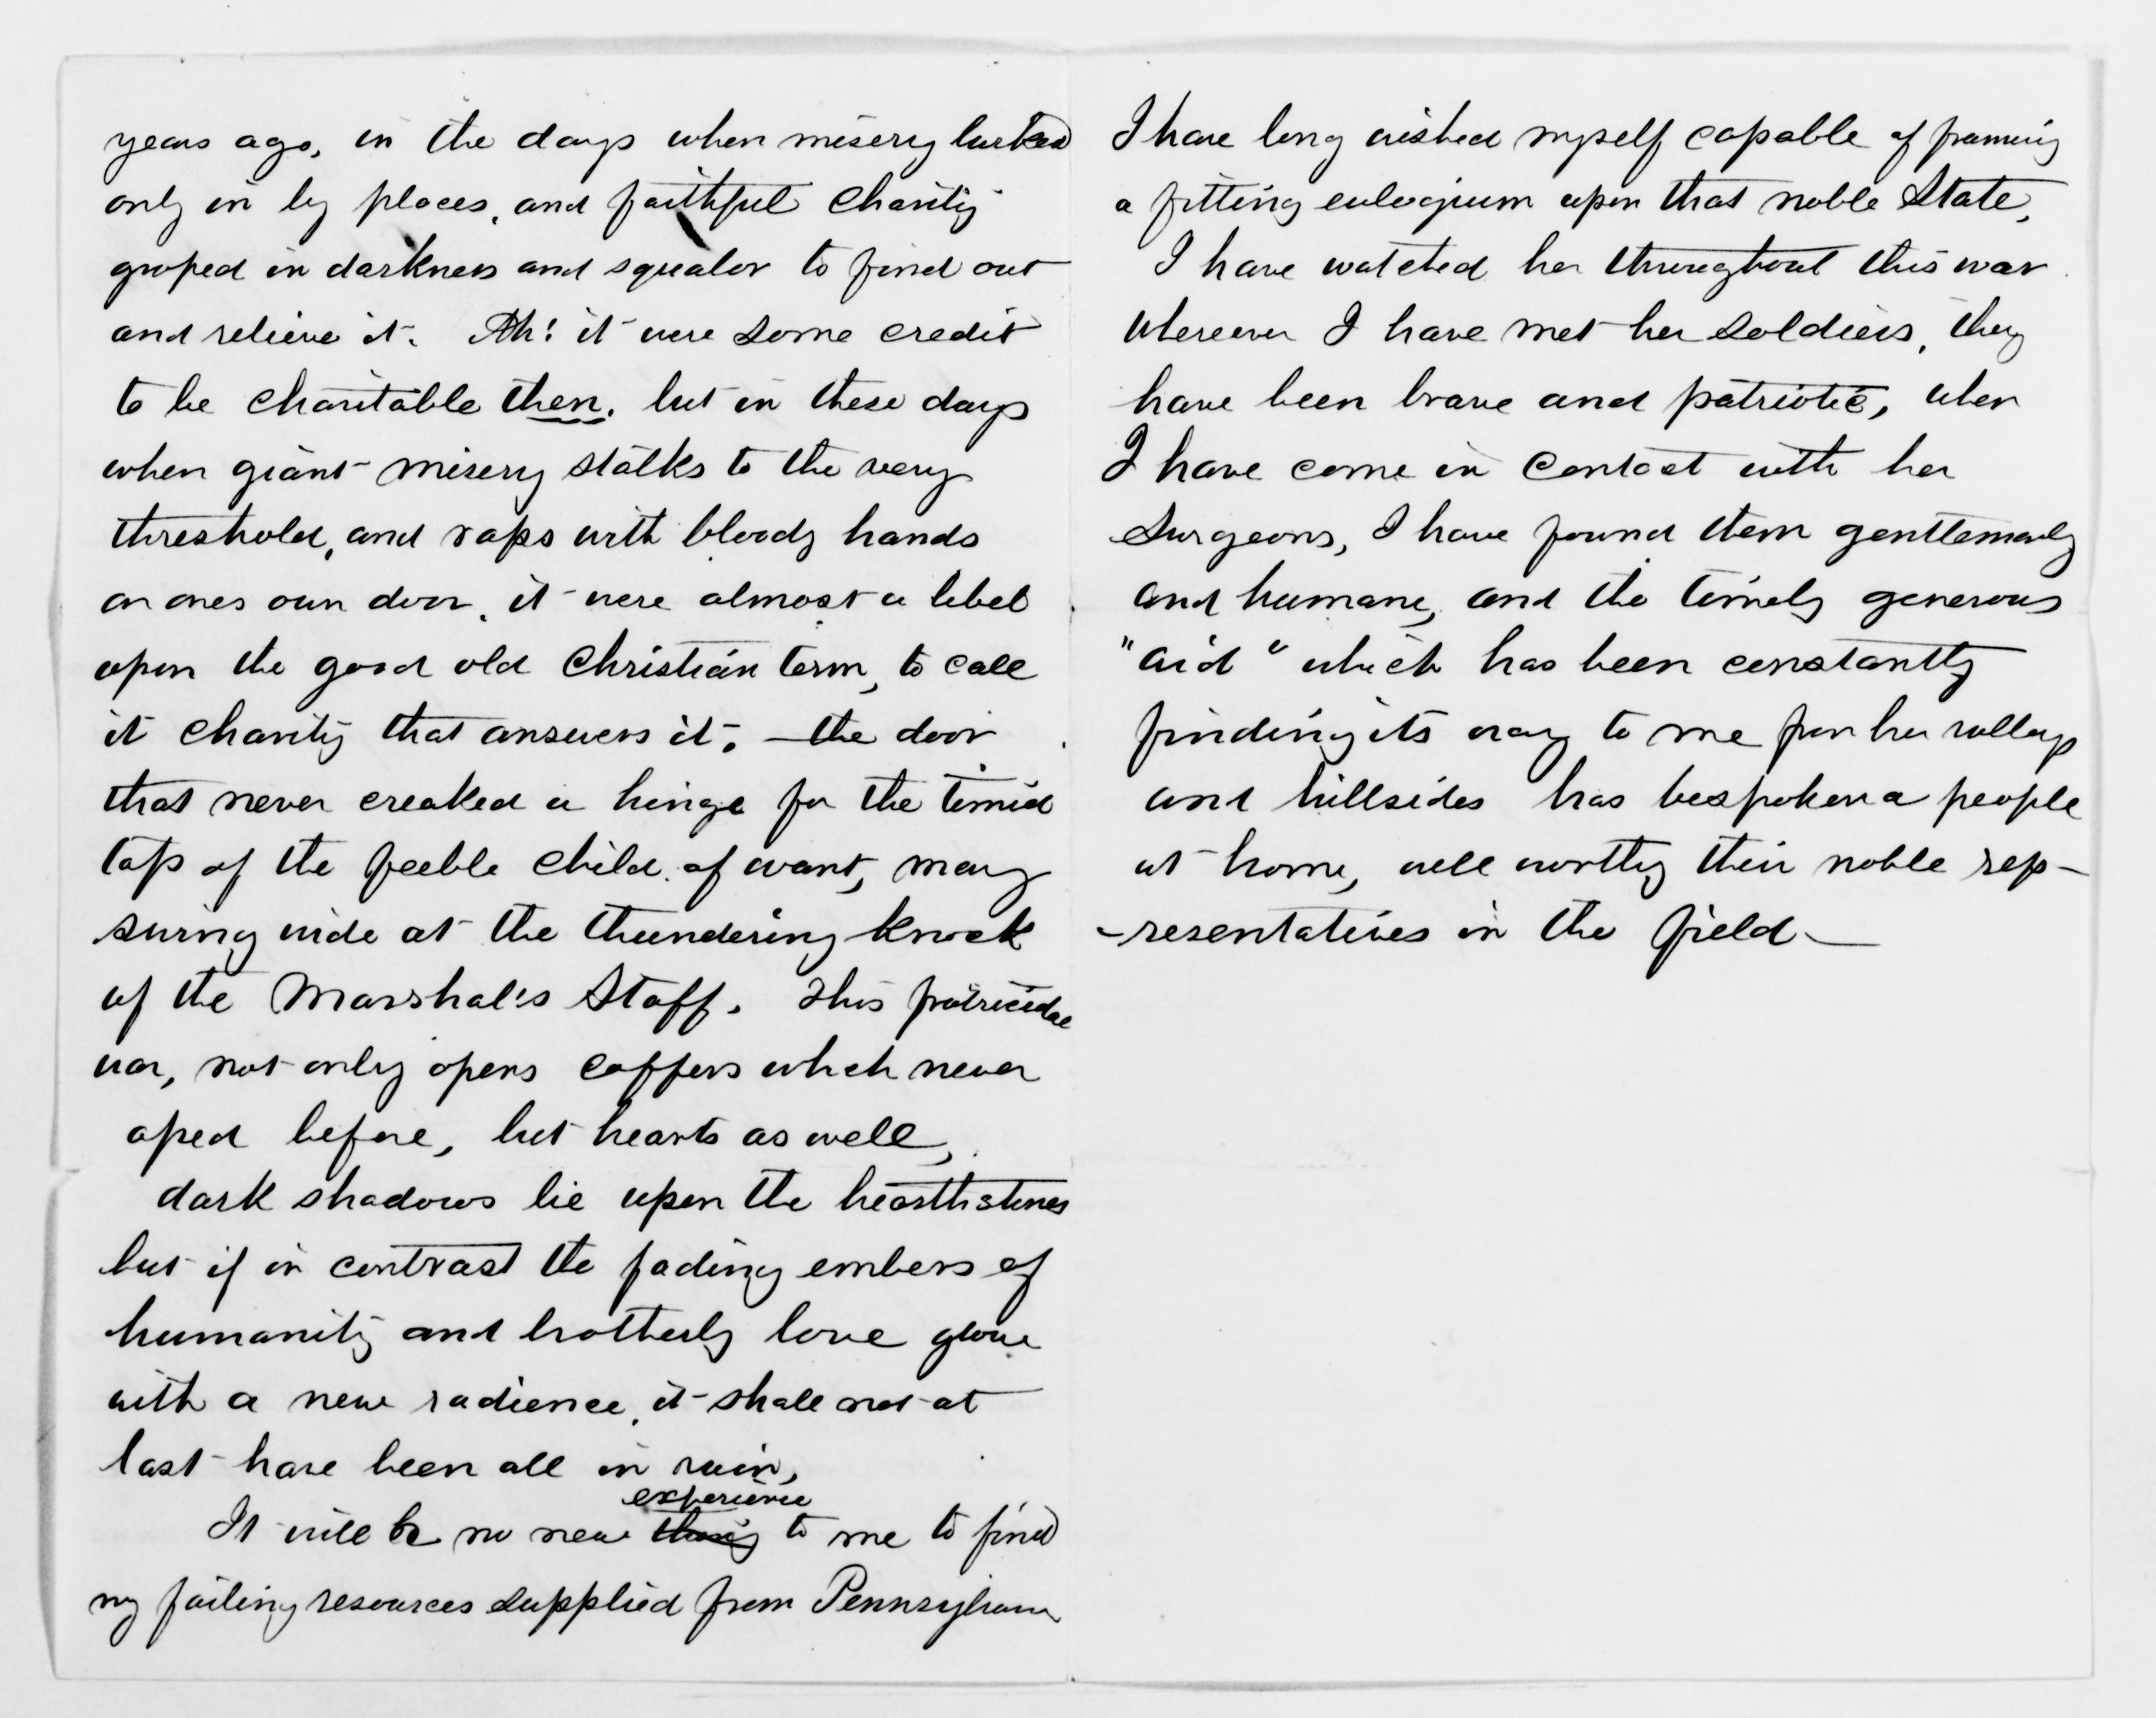 years ago, in the days when misery lurked
only in by places, and faithful charity
groped in darkness and squalor to find out
and relieve it. Ah! it were some credit
to be charitable then, but in these days
when giant misery stalks to the very
threshold, and raps with bloody hands
on ones own door, it were almost a libel
upon the good old Christian term, to call
it charity that answers it. — the door
that never creaked a hinge for the timid
taps of the feeble child of want, may
swing wide at the thundering knock
of the Marshal's Staff. This fratricidal
war, not only opens coffers which never
oped before, but hearts as well,
dark shadows lie upon the hearthstones
but if in contrast the fading embers of
humanity and brotherly love glow
with a new radience, it shall not at
last have been all in vain,
It will be no new thing experience to me to find
my failing resources supplied from Pennsylvania
I have long wished myself capable of framing
a fitting eulogium upon that noble State,
I have watched her throughout this war
Wherever I have met her Soldiers, they
have been brave and patriotic, when
I have come in contact with her
Surgeons, I have found them gentlemanly
and humane, and the timely generous
"aid" which has been constantly
finding its way to me from her valleys
and hillsides has bespoken a people
at home, well worthy their noble rep-
-resentatives in the field—